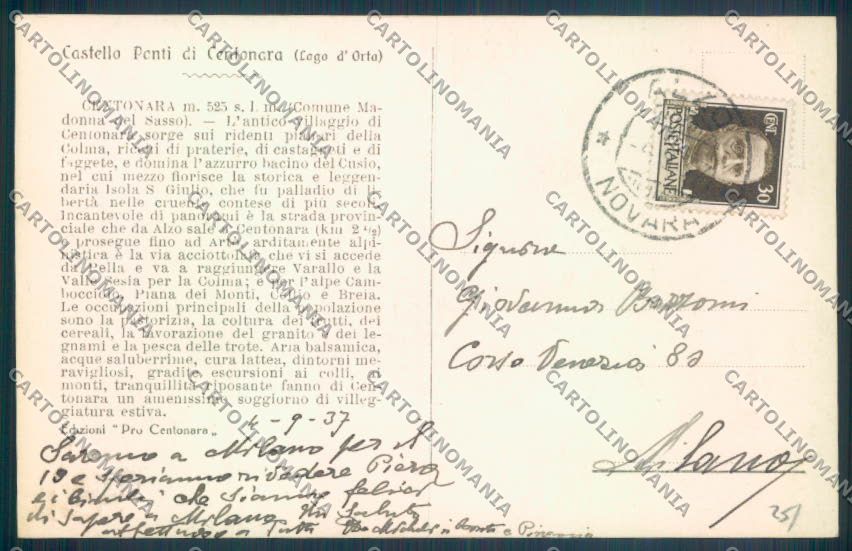 Castello Ponti di Centonara (Lago d'Orta)
CENTONARA m. 525 s. l. m. (Comune Ma-
donna del Sasso). — L'antico villaggio di
Centonara sorge sui ridenti pianori della
Colma, ricchi di praterie, di castagneti e di
faggete, e domina l'azzurro bacino del Cusio,
nel cui mezzo fiorisce la storica e leggen-
daria Isola S. Giulio, che fu palladio di li-
bertà nelle cruente contese di più secoli.
Incantevole di panorami è la strada provin-
ciale che da Alzo sale a Centonara (km 2 ½)
e prosegue fino ad Arto; arditamente alpi-
nistica è la via acciottolata che vi si accede
da Pella e va a raggiungere Varallo e la
Valle Sesia per la Colma; e per l'alpe Cam-
boccio a Piana dei Monti, Civio e Breia.
Le occupazioni principali della popolazione
sono la pastorizia, la coltura dei frutti, dei
cereali, la lavorazione del granito e dei le-
gnami e la pesca delle trote. Aria balsamica,
acque saluberrime, cura lattea, dintorni me-
ravigliosi, gradite escursioni ai colli, ai
monti, tranquillità riposante fanno di Cen-
tonara un amenissimo soggiorno di villeg-
giatura estiva.
Edizioni "Pro Centonara"
4-9-37
Saremo a Milano per il
13 e speriamo rivedere Piera
e i bimbi che siamo felici
di sapere a Milano. Un saluto
affettuoso a tutti
NOVARA
POSTE ITALIANE
CENT
30
Signora
Giovanna Bazzoni
Corso Venezia
Milano
25/
CARTOLINOMANIA